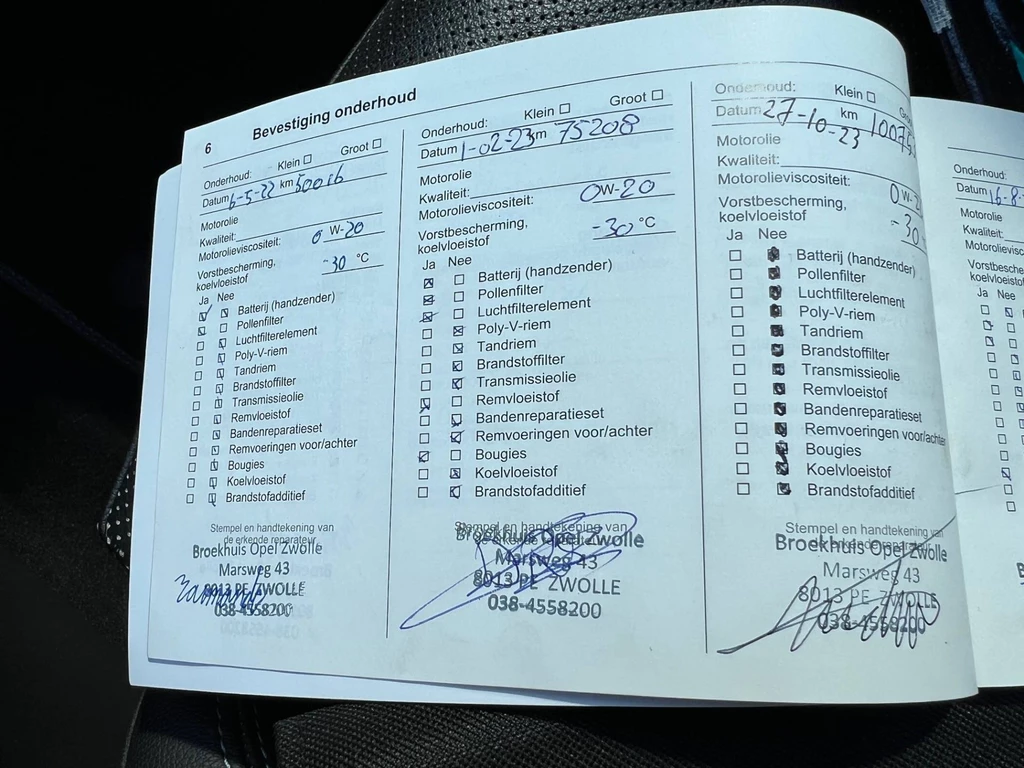 6
Bevestiging onderhoud
Onderhoud: Klein Groot
Datum 6-5-22 km 50016
Motorolie
Kwaliteit:
Motorolieviscositeit: 0 W-20
Vorstbescherming,
koelvloeistof -30 °C
Ja Nee
Batterij (handzender)
Pollenfilter
Luchtfilterelement
Poly-V-riem
Tandriem
Brandstoffilter
Transmissieolie
Remvloeistof
Bandenreparatieset
Remvoeringen voor/achter
Bougies
Koelvloeistof
Brandstofadditief
Stempel en handtekening van
de erkende reparateur
Broekhuis Opel Zwolle
Marsweg 43
8013 PE ZWOLLE
038-4558200
Onderhoud: Klein Groot
Datum 1-02-23 km 75208
Motorolie
Kwaliteit:
Motorolieviscositeit: 0W-20
Vorstbescherming,
koelvloeistof -30 °C
Ja Nee
Batterij (handzender)
Pollenfilter
Luchtfilterelement
Poly-V-riem
Tandriem
Brandstoffilter
Transmissieolie
Remvloeistof
Bandenreparatieset
Remvoeringen voor/achter
Bougies
Koelvloeistof
Brandstofadditief
Stempel en handtekening van
de erkende reparateur
Broekhuis Opel Zwolle
Marsweg 43
8013 PE ZWOLLE
038-4558200
Onderhoud: Klein
Datum 27-10-23 km
Motorolie
Kwaliteit:
Motorolieviscositeit: 0W-2
Vorstbescherming,
koelvloeistof -30
Ja Nee
Batterij (handzender)
Pollenfilter
Luchtfilterelement
Poly-V-riem
Tandriem
Brandstoffilter
Transmissieolie
Remvloeistof
Bandenreparatieset
Remvoeringen voor/achter
Bougies
Koelvloeistof
Brandstofadditief
Stempel en handtekening van
de erkende reparateur
Broekhuis Opel Zwolle
Marsweg 43
8013 PE ZWOLLE
038-4558200
Onderhoud:
Datum 16-8-
Motorolie
Kwaliteit:
Motorolievisc
Vorstbesche
koelvloeistof
Ja Nee